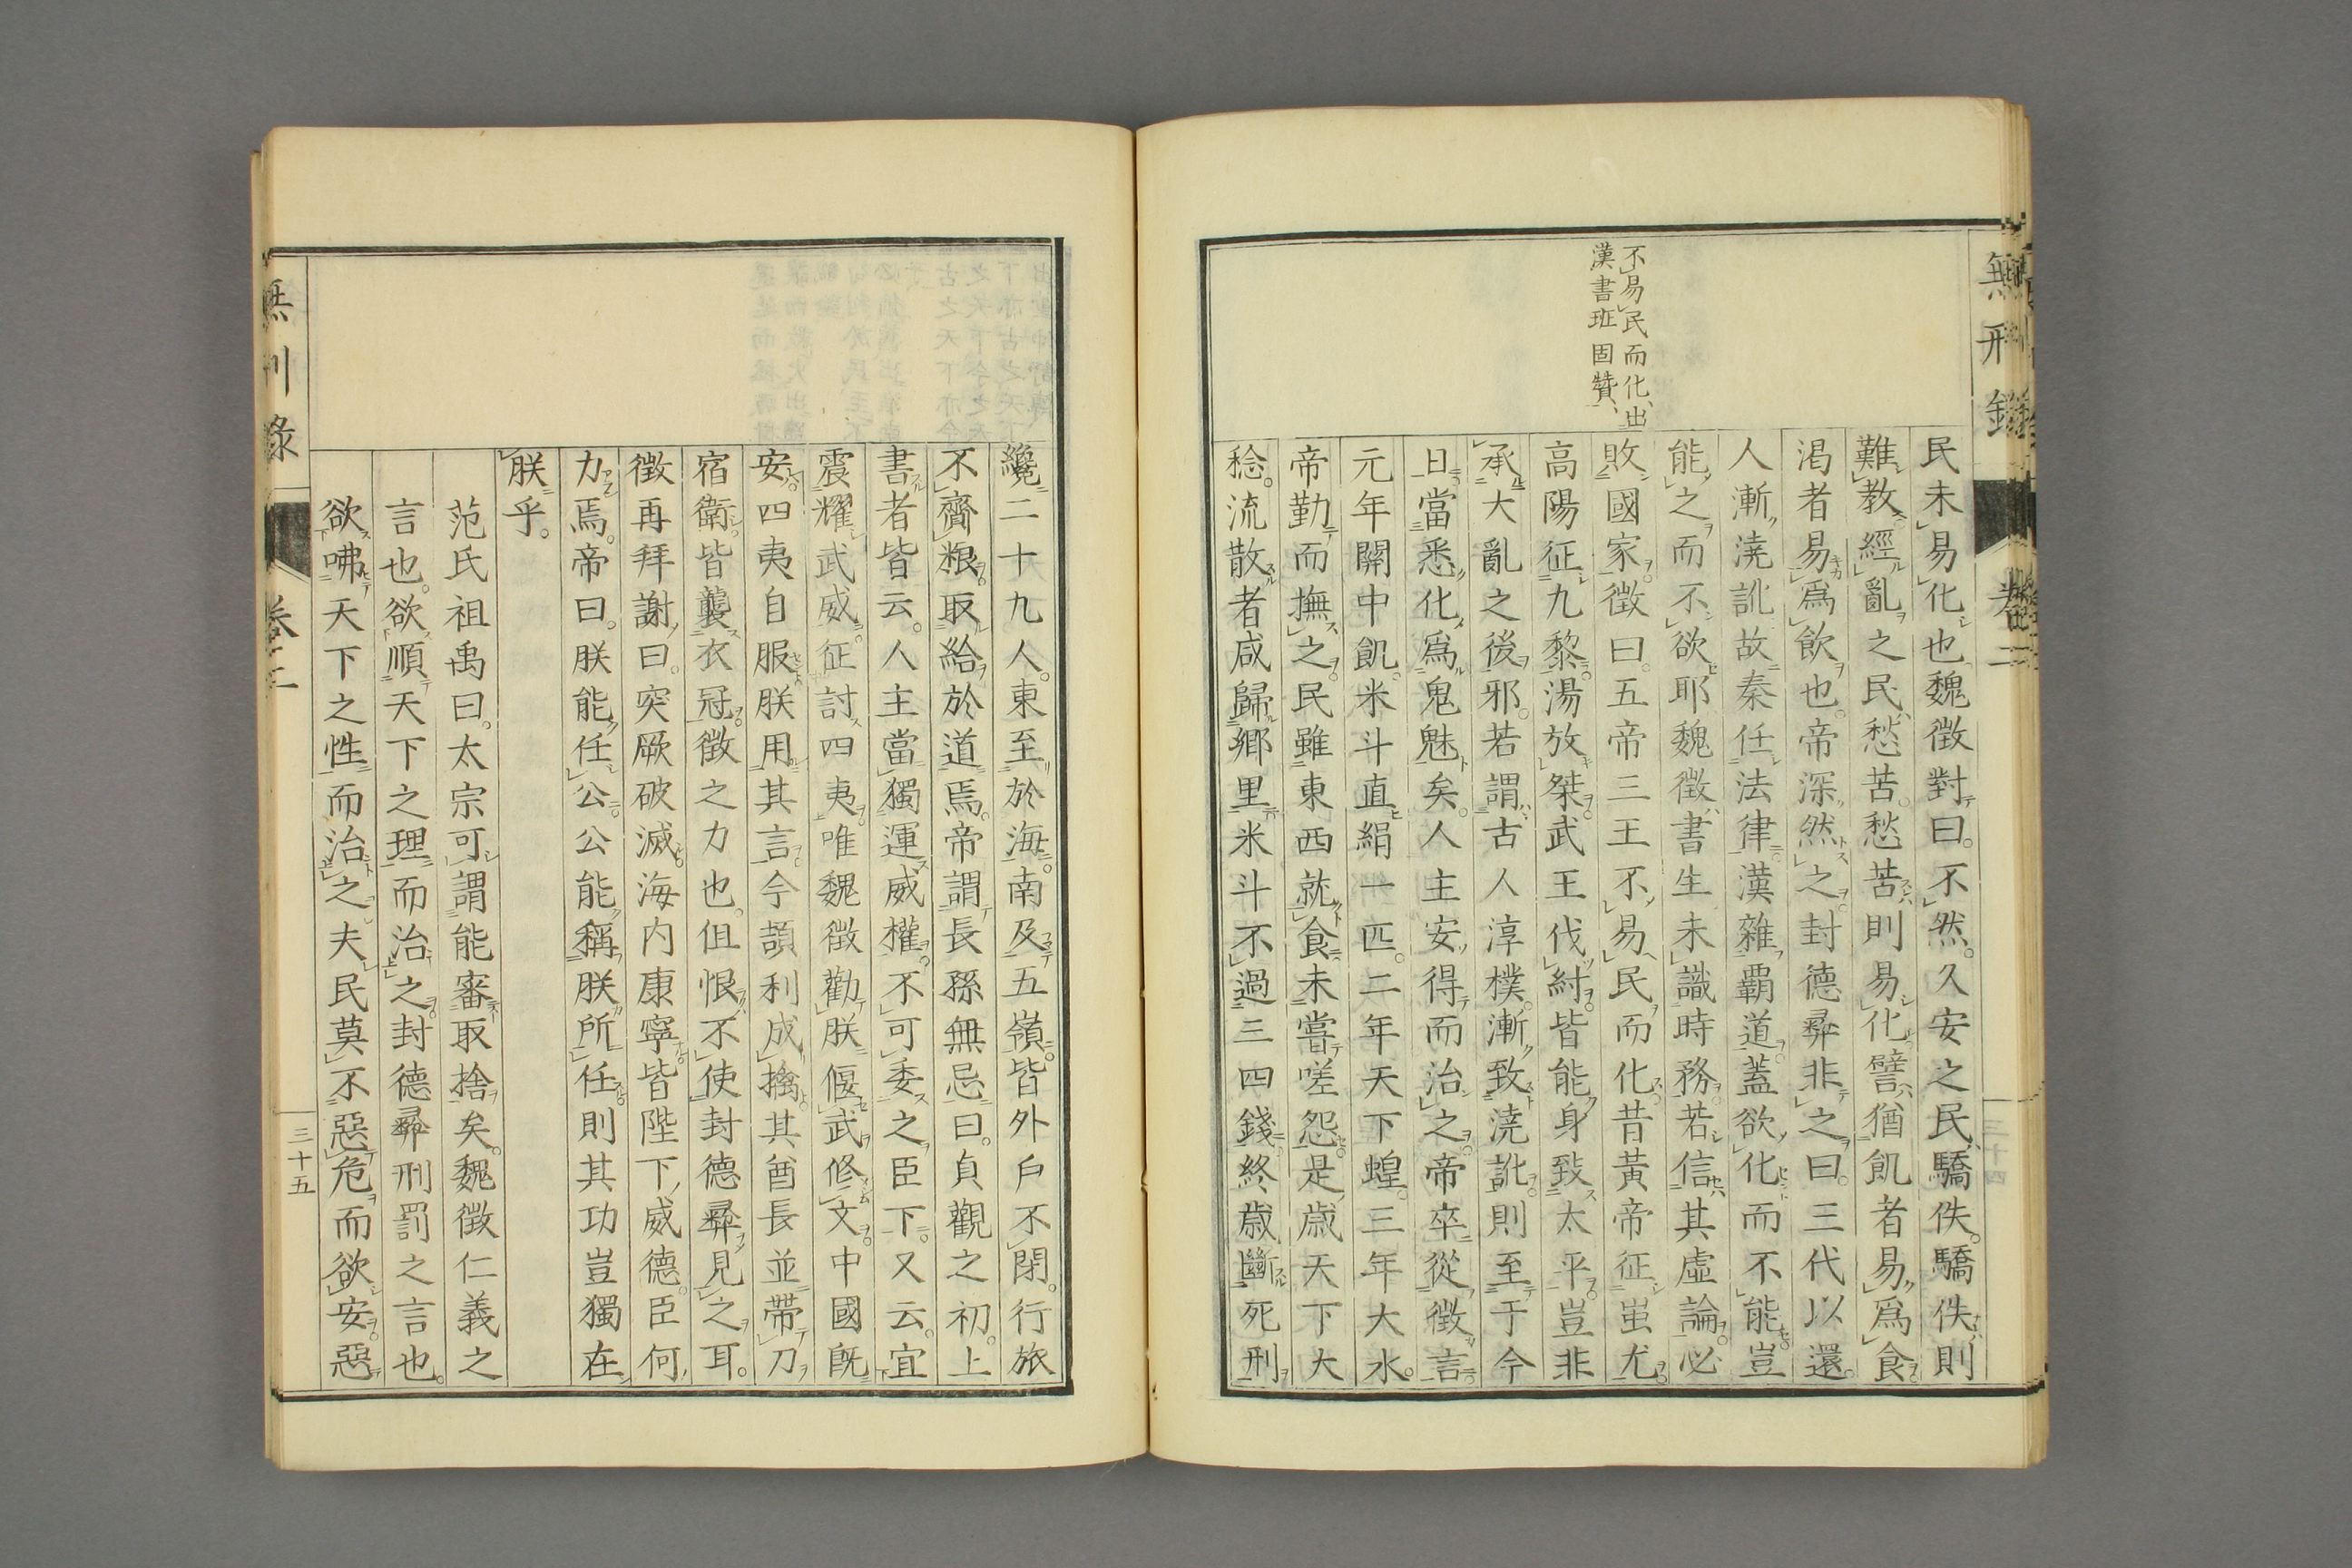 無刑錄
卷二
三十四
不易民而化、出
漢書班固贊、
民未易化也魏徵對曰。不然。久安之民驕佚。驕佚則
難教經亂之民愁苦。愁苦則易化譬猶飢者易爲食
渴者易爲飲也。帝深然之。封德彝非之曰。三代以還。
人漸澆訛故秦任法律漢雜覇道。蓋欲化而不能豈
能之而不欲耶魏徵書生未識時務。若信其虛論。必
敗國家。徵曰。五帝三王不易民而化。昔黃帝征蚩尤。
高陽征九黎。湯放桀。武王伐紂。皆能身致太平。豈非
承大亂之後邪。若謂古人淳樸。漸致澆訛。則至于今
日當悉化爲鬼魅矣。人主安得而治之。帝卒從徵言。
元年關中飢。米斗直絹一匹。二年天下蝗。三年大水。
帝勤而撫之。民雖東西就食未嘗嗟怨。是歳天下大
稔。流散者咸歸鄉里米斗不過三四錢終歳斷死刑
纔二十九人。東至於海。南及五嶺。皆外戶不閉。行旅
不齎粮。取給於道焉。帝謂長孫無忌曰。貞觀之初。上
書者皆云。人主當獨運威權。不可委之臣下。又云。宜
震耀武威。征討四夷。唯魏徵勸朕偃武修文。中國既
安。四夷自服朕用其言。今頡利成擒。其酋長並帶刀
宿衛。皆襲衣冠。徵之力也。但恨不使封德彝見之耳。
徵再拜謝曰。突厥破滅。海内康寧。皆陛下威德。臣何
力焉。帝曰。朕能任公。公能稱朕所任。則其功豈獨在
朕乎。
范氏祖禹曰。太宗可謂能審取捨矣。魏徵仁義之
言也。欲順天下之理而治之。封德彝刑罰之言也。
欲咈天下之性而治之夫民莫不惡危而欲安。惡
無刑錄
卷二
三十五